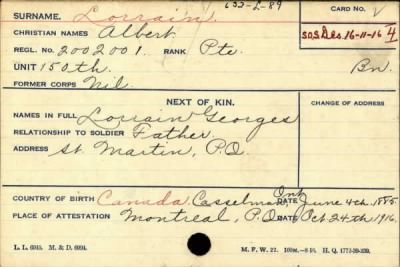 652-L-89
SURNAME. Lorrain. CARD NO. V
CHRISTIAN NAMES Albert SOS Des 16-11-16 4
REGL. NO. 2002001. RANK Pte.
UNIT 150th. Bn.
FORMER CORPS Nil.
NEXT OF KIN. CHANGE OF ADDRESS
NAMES IN FULL Lorrain Georges
RELATIONSHIP TO SOLDIER Father.
ADDRESS St. Martin, P.Q.
COUNTRY OF BIRTH Canada. Casselman, Ont. DATE June 4th. 1885.
PLACE OF ATTESTATION Montreal, P.Q. DATE Oct 24th 1916.
L. L. 6045. M. & D. 6094. M. F. W. 22. H. Q. 1772-39-339.